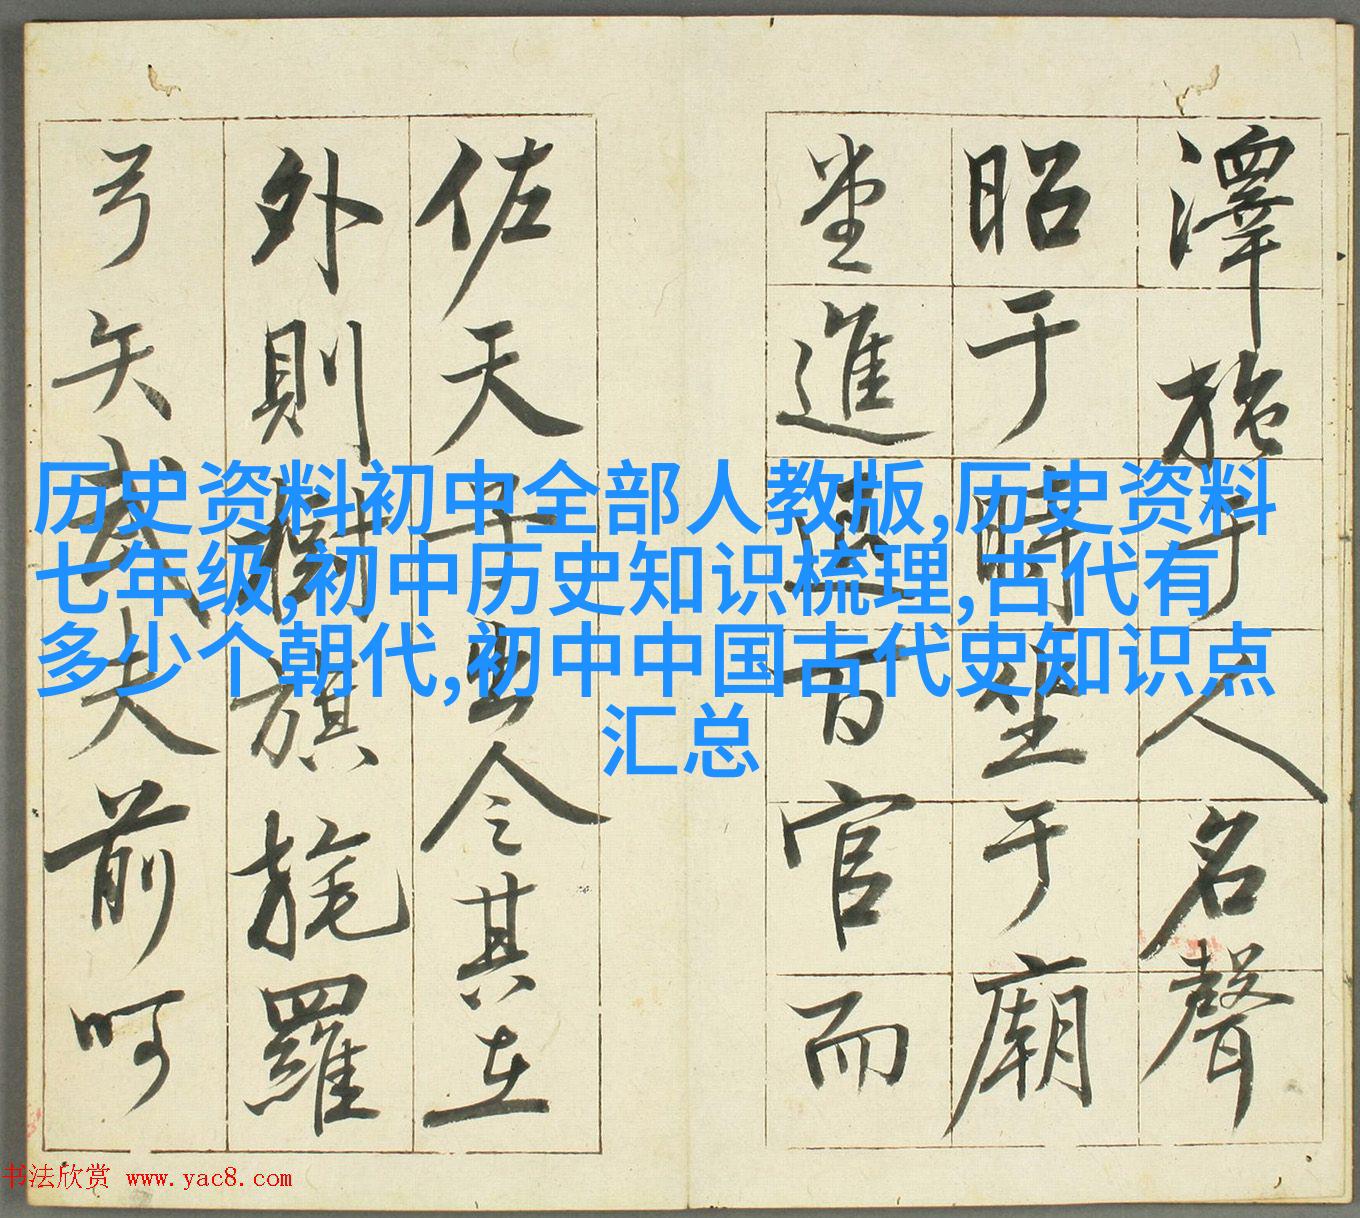 澤施于人名聲
昭于時坐于廟
堂進退百官而
佐天子出令其在
外則樹旗旄羅
弓矢武夫前呵
历史资料初中全部人教版,历史资料
七年级,初中历史知识梳理,古代有
多少个朝代,初中中国古代史知识点
汇总
书法欣赏 www.yac8.com